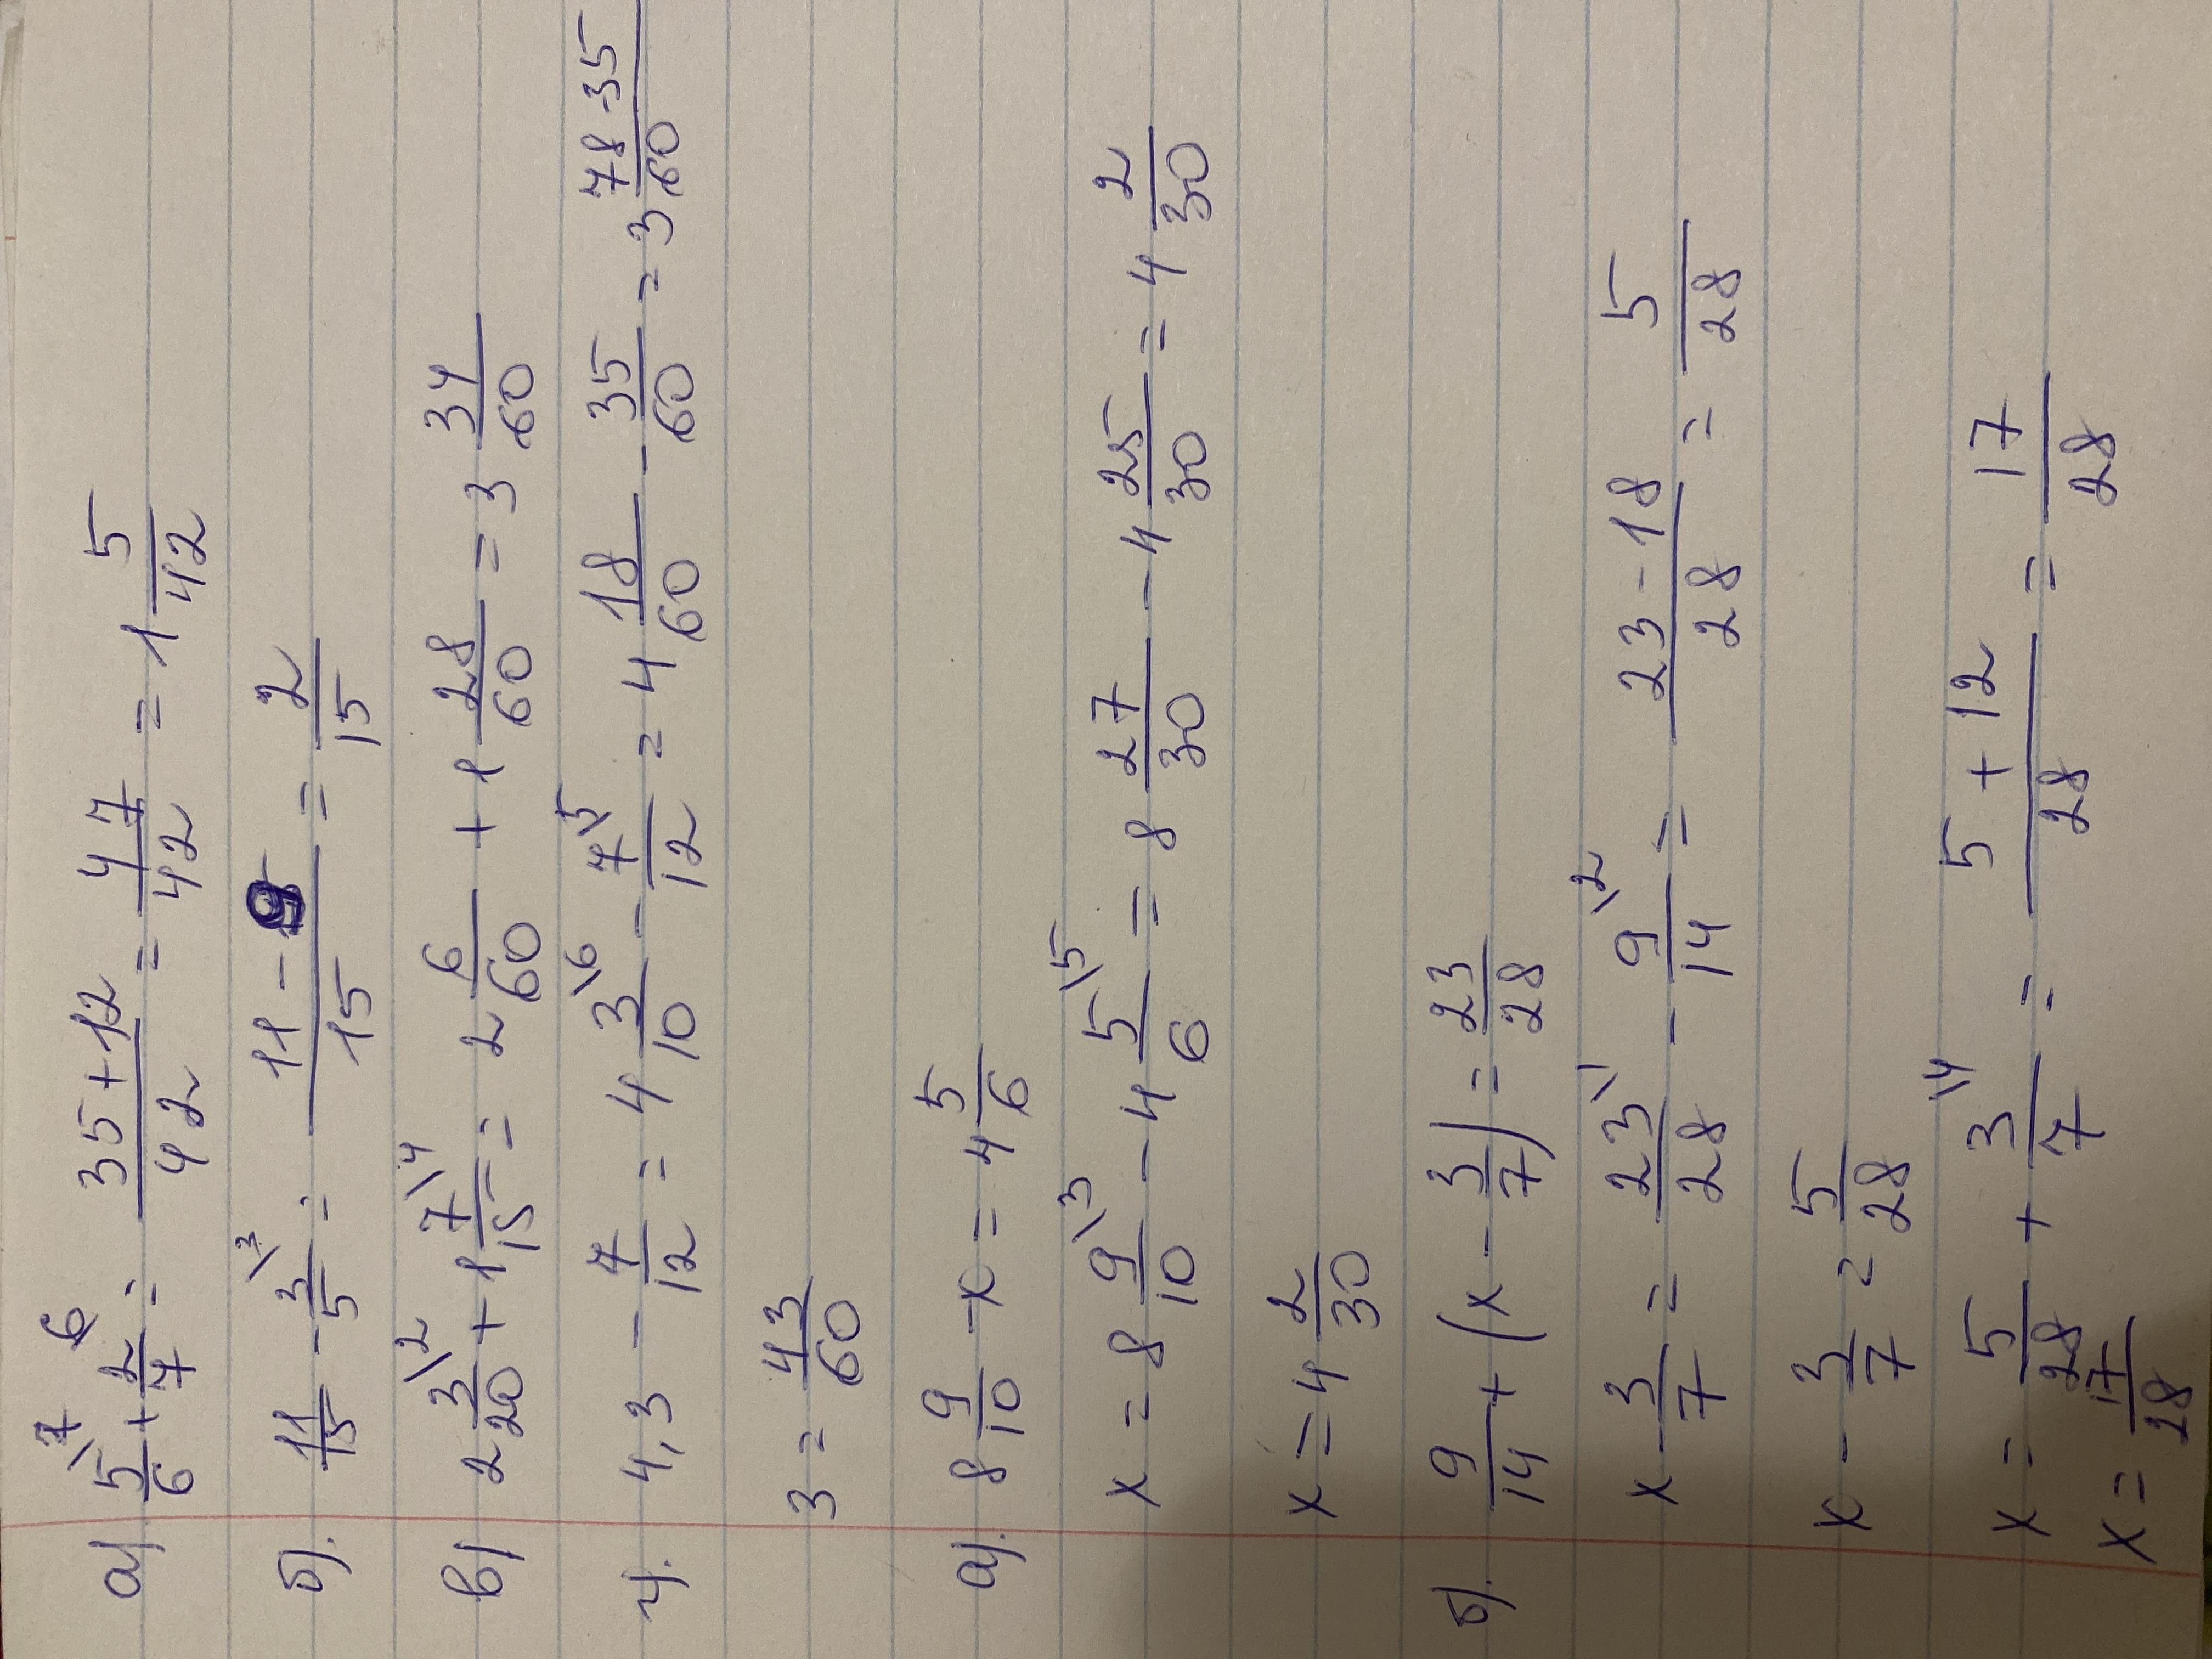 а) 5/6\7 + 2/7\6 = (35+12)/42 = 47/42 = 1 5/42
б). 11/15 - 3/5\3 = (11-9)/15 = 2/15
в) 2 3/20\2 + 1 7/15\4 = 2 6/60 + 1 28/60 = 3 34/60
г). 4,3 - 7/12 = 4 3/10\6 - 7/12\5 = 4 18/60 - 35/60 = 3 (78-35)/60
3 = 43/60
а). 8 9/10 - x = 4 5/6
x = 8 9/10\3 - 4 5/6\5 = 8 27/30 - 4 25/30 = 4 2/30
x = 4 2/30
б). 9/14 + (x - 3/7) = 23/28
x - 3/7 = 23/28\1 - 9/14\2 = (23-18)/28 = 5/28
x - 3/7 = 5/28
x = 5/28 + 3/7\4 = (5+12)/28 = 17/28
x = 17/28